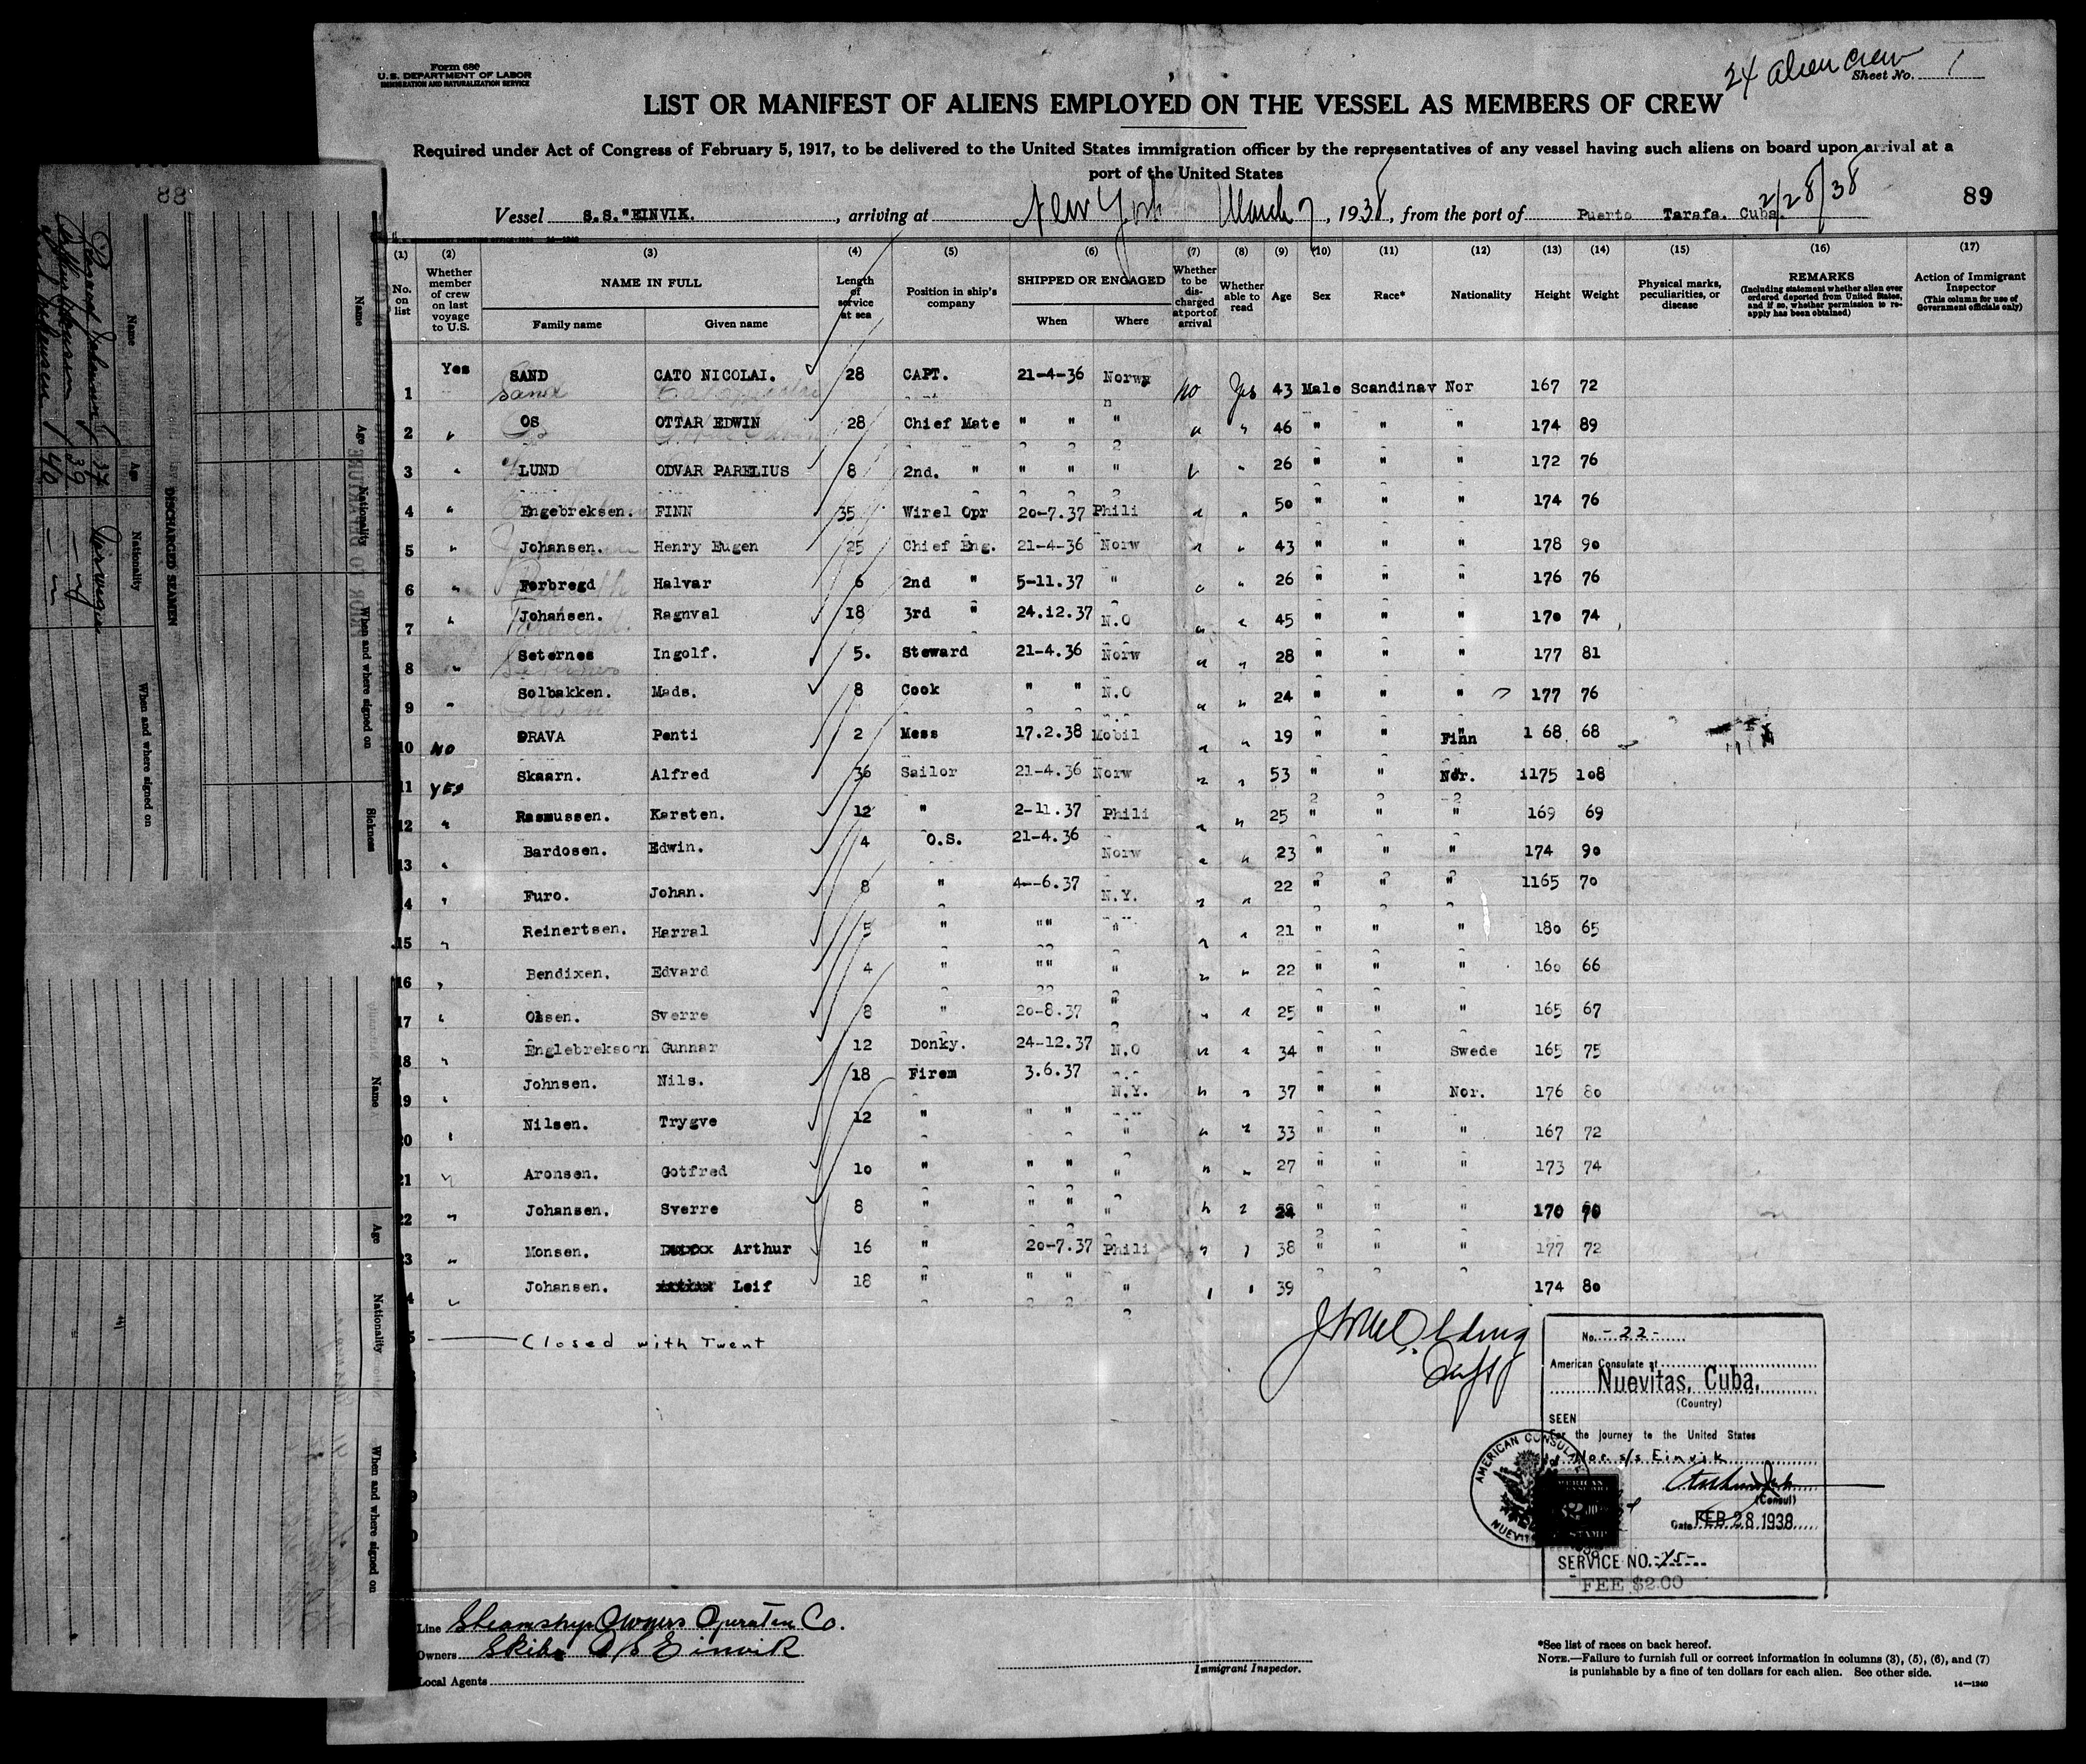 Form 680
U.S. DEPARTMENT OF LABOR
IMMIGRATION AND NATURALIZATION SERVICE
24 alien crew
Sheet No. 1
LIST OR MANIFEST OF ALIENS EMPLOYED ON THE VESSEL AS MEMBERS OF CREW
Required under Act of Congress of February 5, 1917, to be delivered to the United States immigration officer by the representatives of any vessel having such aliens on board upon arrival at a
port of the United States
Vessel S.S."EINVIK. , arriving at New York March 7 , 1938, from the port of Puerto Tarafa. Cuba. 2/28/38
89
88
(1) (2) (3) (4) (5) (6) (7) (8) (9) (10) (11) (12) (13) (14) (15) (16) (17)
No. on list
Whether member of crew on last voyage to U.S.
NAME IN FULL
Family name Given name
Length of service at sea
Position in ship's company
SHIPPED OR ENGAGED
When Where
Whether to be discharged at port of arrival
Whether able to read
Age Sex Race* Nationality Height Weight
Physical marks, peculiarities, or disease
REMARKS
(Including statement whether alien ever ordered deported from United States, and if so, whether permission to reapply has been obtained)
Action of Immigrant Inspector
(This column for use of Government officials only)
1 Yes SAND CATO NICOLAI. 28 CAPT. 21-4-36 Norw No Yes 43 Male Scandinav Nor 167 72
2 " OS OTTAR EDWIN 28 Chief Mate " " " " " 46 " " " 174 89
3 " LUND ODVAR PARELIUS 8 2nd. " " " " " " 26 " " " 172 76
4 " Engebreksen. FINN 35 Wirel Opr 20-7.37 Phili " " 50 " " " 174 76
5 " Johansen. Henry Eugen 25 Chief Eng. 21-4-36 Norw " " 43 " " " 178 90
6 " Forbregd Halvar 6 2nd " 5-11.37 " " " 26 " " " 176 76
7 " Johansen. Ragnval 18 3rd " 24.12.37 N.O " " 45 " " " 170 74
8 " Seternes Ingolf. 5. Steward 21-4.36 Norw " " 28 " " " 177 81
9 " Solbakken. Mads. 8 Cook " " N.O " " 24 " " " 177 76
10 NO DRAVA Penti 2 Mess 17.2.38 Mobil " " 19 " " Finn 1 68 68
11 YES Skaarn. Alfred 36 Sailor 21-4.36 Norw " " 53 " " Nor. 1175 108
12 " Rasmussen. Karsten. 12 " 2-11.37 Phili " " 25 " " " 169 69
13 " Bardosen. Edwin. 4 O.S. 21-4.36 Norw " " 23 " " " 174 90
14 " Furo. Johan. 8 " 4--6.37 N.Y. " " 22 " " " 1165 70
15 " Reinertsen. Harral 5 " "" " " " 21 " " " 180 65
16 " Bendixen. Edvard 4 " "" " " " 22 " " " 160 66
17 " Olsen. Sverre 8 " 20-8.37 " " " 25 " " " 165 67
18 " Englebreksorn Gunnar 12 Donky. 24-12.37 N.O " " 34 " " Swede 165 75
19 " Johnsen. Nils. 18 Firem 3.6.37 N.Y. " " 37 " " Nor. 176 80
20 " Nilsen. Trygve 12 " " " " " " 33 " " " 167 72
21 " Aronsen. Gotfred 10 " " " " " " 27 " " " 173 74
22 " Johansen. Sverre 8 " " " " " " 24 " " " 170 70
23 " Monsen. Arthur 16 " 20-7.37 Phili " " 38 " " " 177 72
4 " Johansen. Leif 18 " " " " " " 39 174 80
Closed with Twent
No. -22-
American Consulate at
Nuevitas, Cuba.
(Country)
SEEN
For the journey to the United States
Nor s/s Einvik
(Consul)
Date FEB 28 1938
SERVICE NO. -15-
FEE $2.00
AMERICAN CONSULATE
Line Steamship Owners Operaten Co.
Owners Skibs A/S Einvik
Local Agents
Immigrant Inspector.
*See list of races on back hereof.
NOTE.—Failure to furnish full or correct information in columns (3), (5), (6), and (7)
is punishable by a fine of ten dollars for each alien. See other side.
14—1240
DISCHARGED SEAMEN
Name Age Nationality When and where signed on
37 Norwegian
39
40
Name Age Nationality When and where signed on Sickness
Name Age Nationality When and where signed on